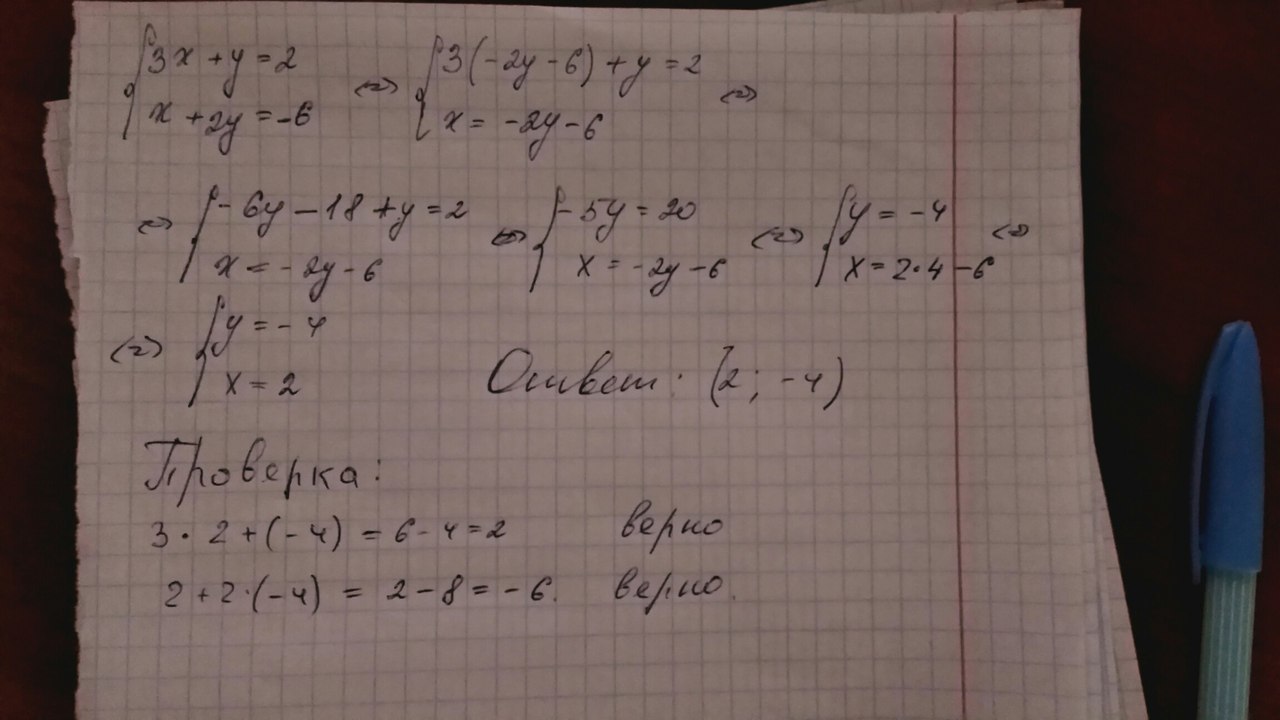 {3x + y = 2 <=> {3(-2y - 6) + y = 2 <=>
x + 2y = -6 x = -2y - 6
<=> {-6y - 18 + y = 2 <=> {-5y = 20 <=> {y = -4 <=>
x = -2y - 6 x = -2y - 6 x = 2·4 - 6
<=> {y = -4
x = 2 Ответ: (2; -4)
Проверка:
3·2 + (-4) = 6 - 4 = 2 верно
2 + 2·(-4) = 2 - 8 = -6. верно.